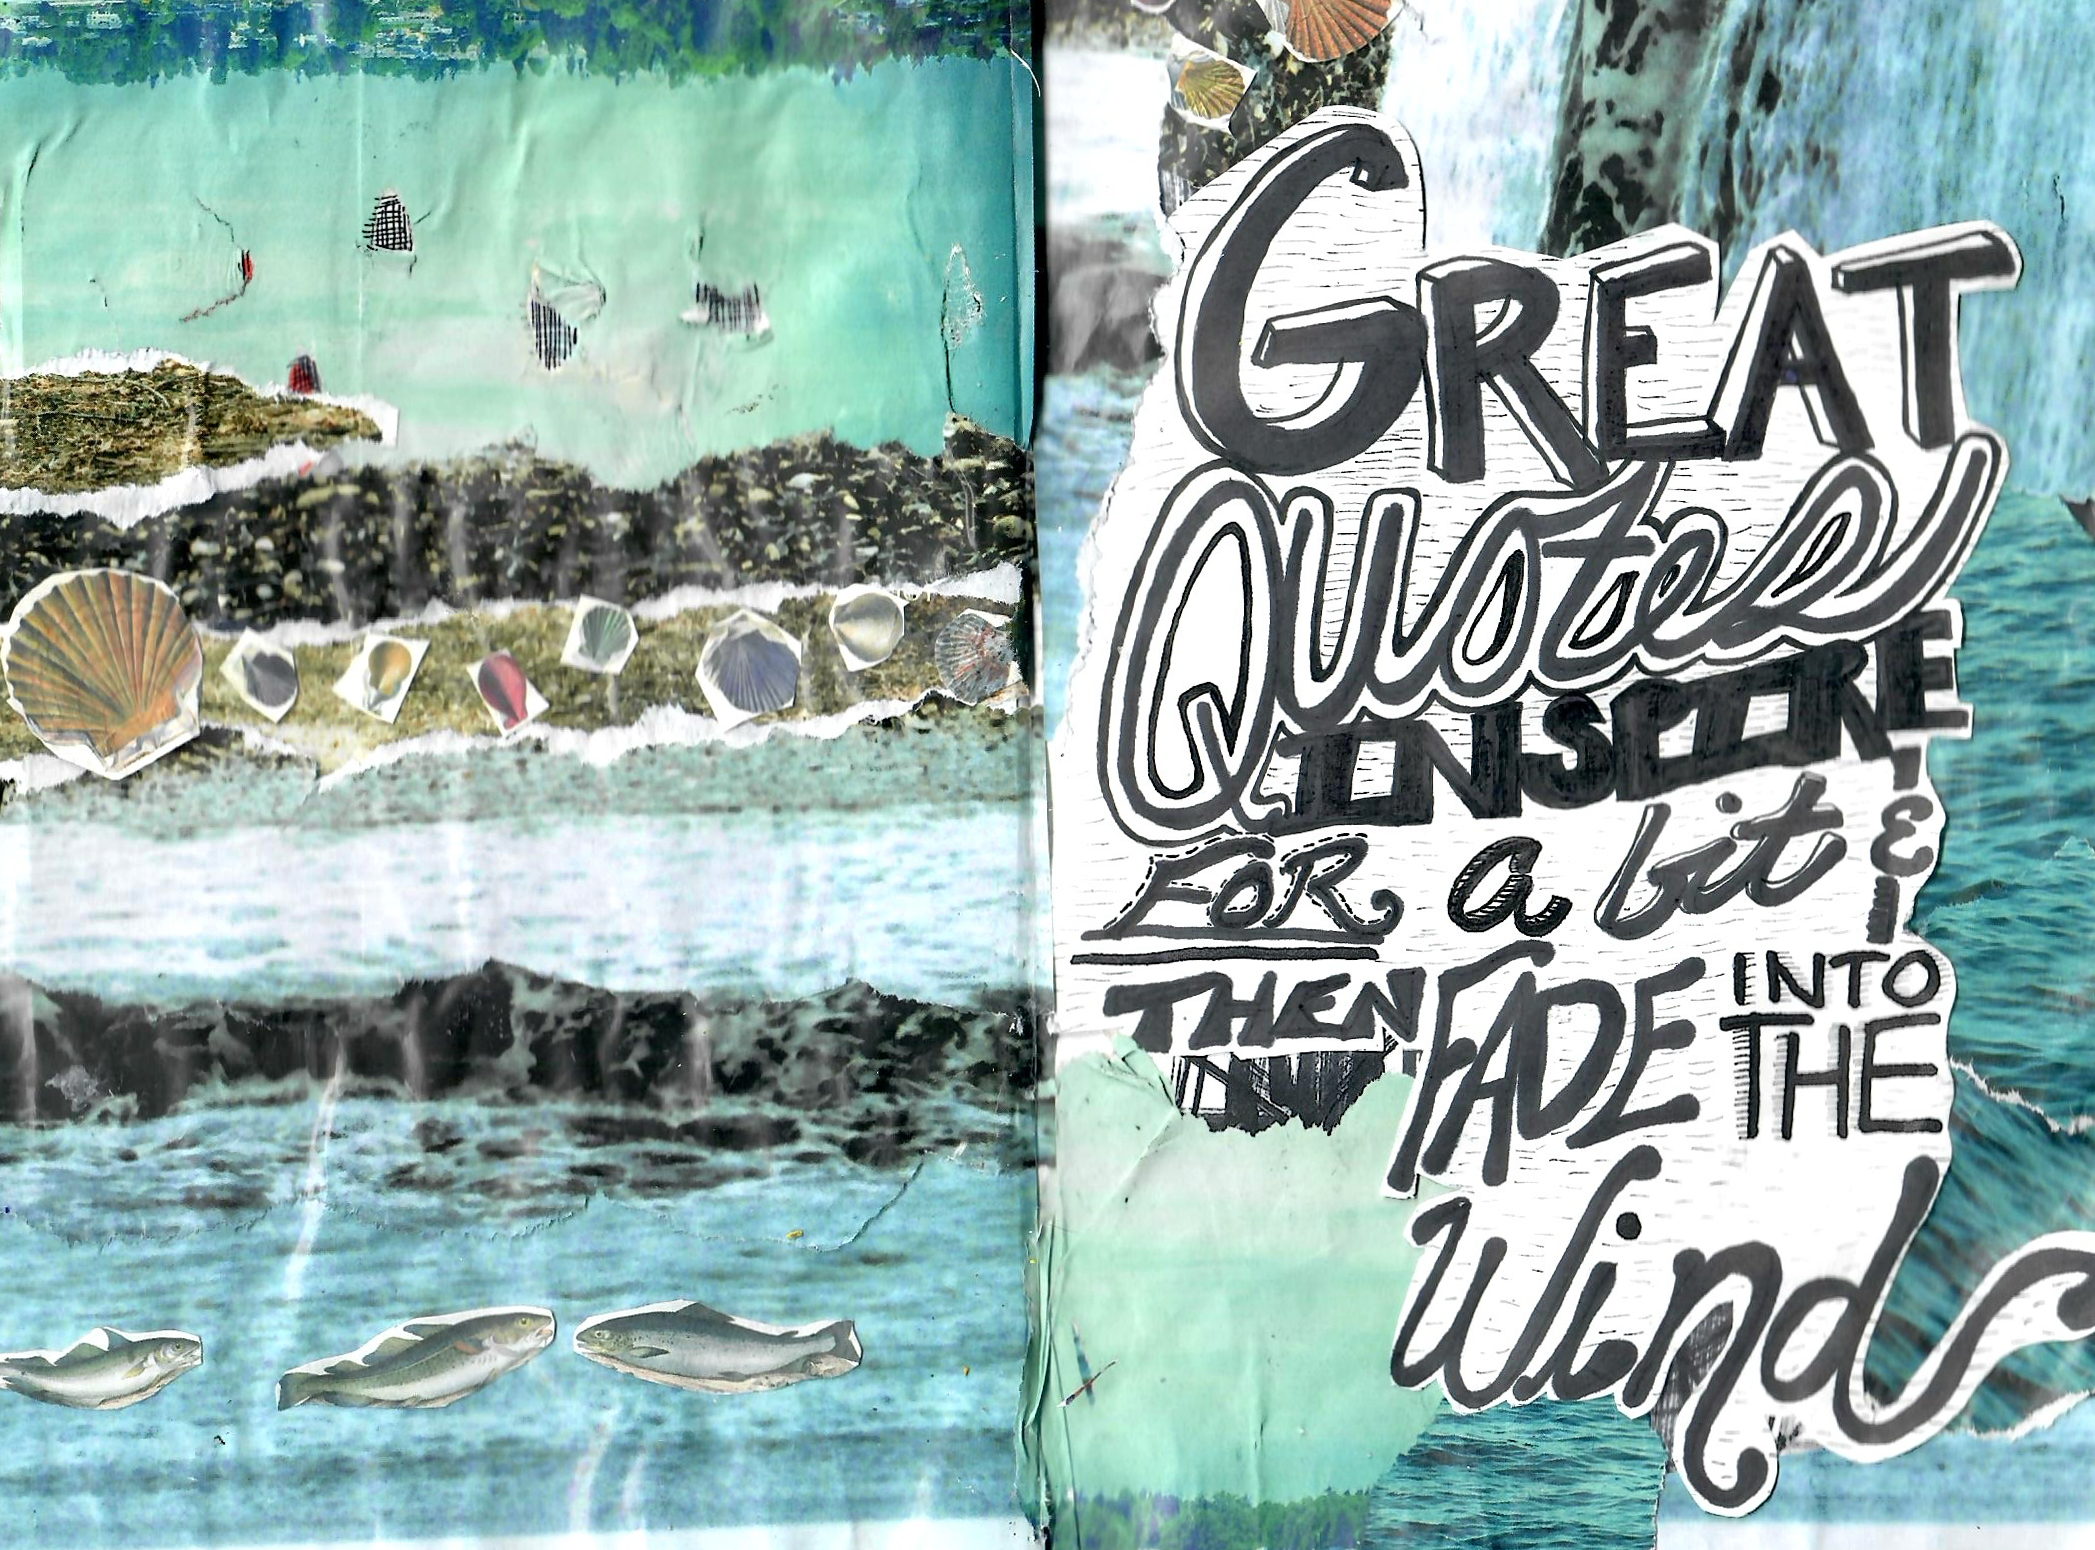 GREAT
Quotes
INSPIRE
FOR a bit &
THEN FADE INTO
THE
Wind